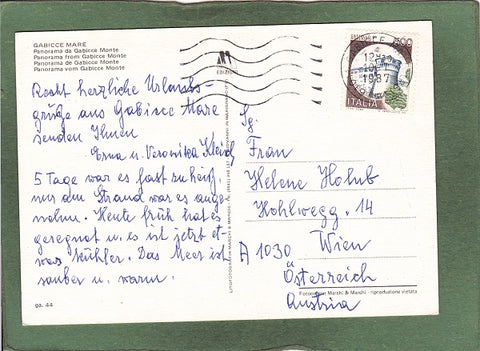 GABICCE MARE
Panorama da Gabicce Monte
Panorama from Gabicce Monte
Panorama de Gabicce Monte
Panorama vom Gabicce Monte
Recht herzliche Urlaubs-
grüße aus Gabicce Mare
senden Ihnen
Erna u. Veronika
5 Tage war es fast zu heiß,
nur am Strand war es ange-
nehm. Heute früh hat es
geregnet u. es ist jetzt et-
was kühler. Das Meer ist
sauber u. warm.
ga. 44
EDIZIONI
500
1987
ITALIA
Sg.
Frau
Helene Holub
Hohlwegg. 14
A 1030 Wien
Österreich
Austria
Fotoedizioni Marchi & Marchi - riproduzione vietata